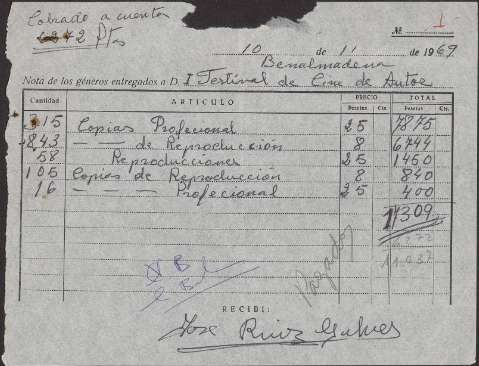 Cobrado a cuenta
6272 Pts
Nº 1
10 de 11 de 1969
Benalmadena
Nota de los géneros entregados a D. I Festival de Cine de Autor
Cantidad ARTICULO PRECIO TOTAL
Pesetas Cts. Pesetas Cts.
315 Copias Profecional 25 7875
843 — — de Reproducción 8 6744
58 Reproducciones 25 1450
105 Copias de Reproducción 8 840
16 — — — Profecional 25 400
17309
6272
11037
Pagado
RECIBI:
Jose Ruiz